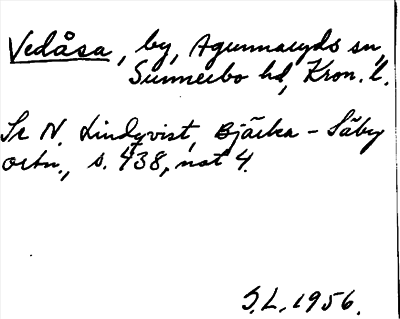 Vedåsa, by, Agunnaryds sn,
Sunnerbo hd, Kron. l.
Se N. Lindqvist, Bjärka-Säby
ortn., s. 438, not 4.
S.L. 1956.